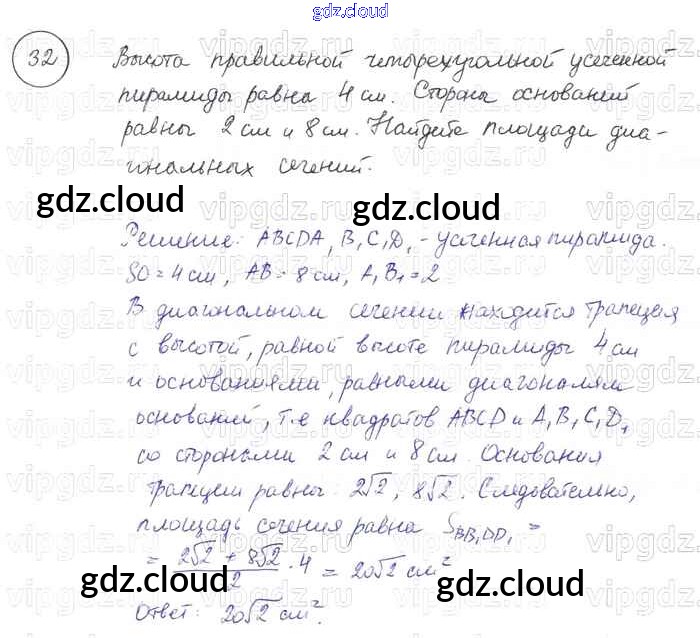 gdz.cloud
32 Высота правильной четырехугольной усеченной
пирамиды равна 4 см. Стороны оснований
равны 2 см и 8 см. Найдите площади диа-
гональных сечений.
gdz.cloud gdz.cloud
Решение: ABCDA₁B₁C₁D₁ - усеченная пирамида.
SO = 4 см, AB = 8 см, A₁B₁ = 2
В диагональном сечении находится трапеция
с высотой, равной высоте пирамиды 4 см
и основаниями, равными диагоналям
оснований, т.е квадратов ABCD и A₁B₁C₁D₁
со сторонами 2 см и 8 см. Основания
трапеции равны: 2√2, 8√2. Следовательно,
площадь сечения равна S_BB₁DD₁ =
= (2√2 + 8√2)/2 · 4 = 20√2 см²
gdz.cloud gdz.cloud
Ответ: 20√2 см².